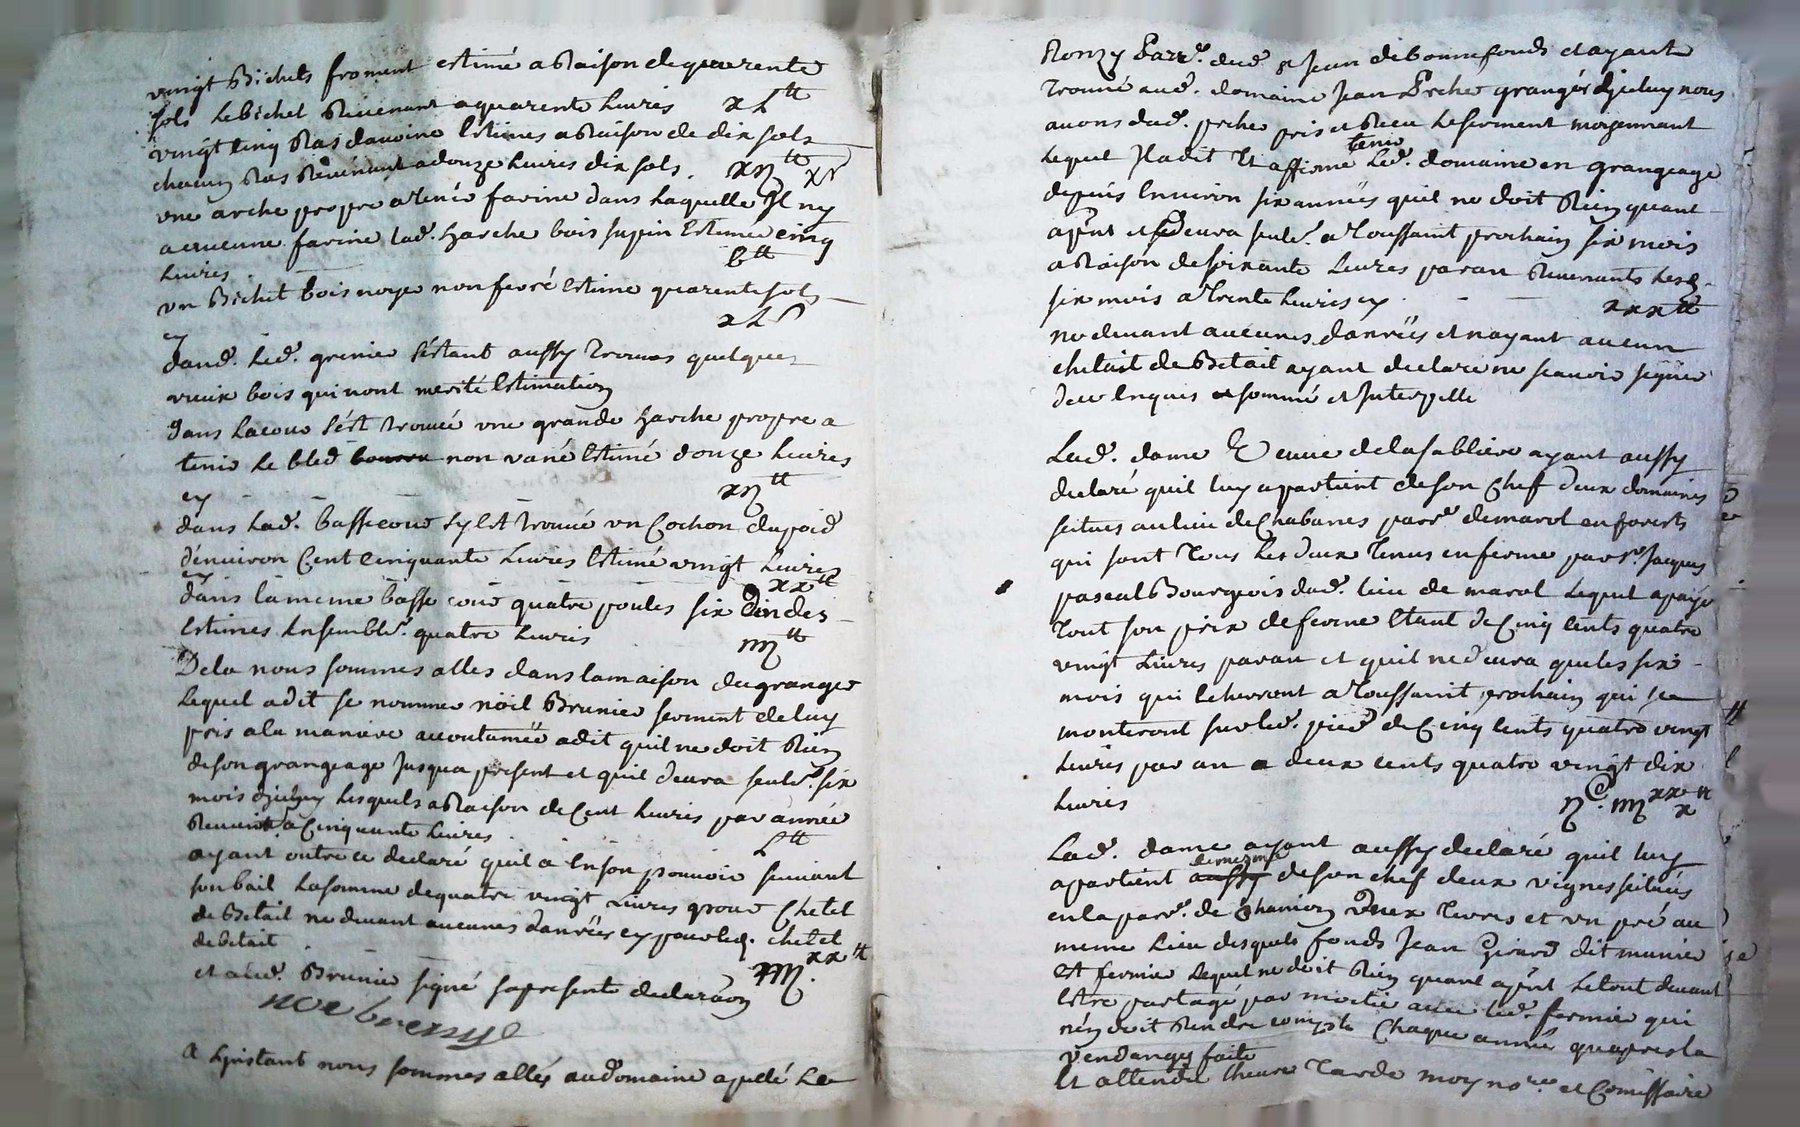 vingt Bichets froment estimé a Raison de quarente
sols le bichet Revenant a quarente Livres xL tt
vingt cinq Ras davoine Estimes a Raison de dix sols
chacun Ras Revenant a douze Livres dix sols. xij tt x s
une arche propre a tenir farine dans laquelle Il ny
a aucune farine lad. harche bois supin Estimee cinq
Livres b tt
un Bichet bois noye non feré Estime quarente sols
cy xL s
dans led. grenier sestant aussy trouvés quelques
vieux bois qui nont merité Estimation
dans la cour sest trouvé une grande harche propre a
tenir le bled non vané Estimé douze Livres
cy xij tt
dans lad. basse cour sy est trouvé un Cochon du poid
denviron Cent Cinquante Livres Estimé vingt Livres
cy xx tt
dans la meme basse cour quatre poules six dindes
Estimes Ensemble. quatre Livres iiij tt
Dela nous sommes alles dans la maison du granger
Lequel a dit se nommer noël Brunier serment de luy
pris a la maniere accoutumée a dit quil ne doit Rien
de son grangeage Jusqua present et quil devra seult. six
mois Lesquels a Raison de Cent Livres par année
Revient a Cinquante Livres L tt
ayant outre ce declaré quil a En son pouvoir suivant
son bail La somme de quatre vingt Livres pour Chetel
de Betail ne devant aucunes danrées cy pour led. chetel
de betail iiij xx tt
et a led. Brunier signé sa presente declaraon
noe brenye
A Linstant nous sommes allés au domaine apelé Le
Ronzy Parr.e dud. St Jean de bonnefonds et ayant
Trouvé aud. domaine Jean Perche granger diceluy nous
avons dud. perche pris et Receu Le serment moyennant
Lequel Il a dit Et affirmé tenir Led. domaine en grangeage
depuis Environ six années quil ne doit Rien quant
apnt et devra seult. a Toussaint prochain six mois
a Raison de soixante Livres par an Revenants Lesd.
six mois a Trente Livres cy xxx tt
ne devant aucunes danrées et nayant aucun
chetail de Betail ayant declaré ne scavoir signer
deuv Enquis sommé et Interpellé
Lad. dame Veuve de la sabliere ayant aussy
declaré quil luy apartient de son Chef deux domaines
scitues au lieu de Chabanes parr.e de marol en forests
qui sont Tous Les deux Tenus en ferme par sr. Jacques
pascal Bourgeois dud. lieu de marol Lequel a payé
Tout son prix de ferme Etant de Cinq Cents quatre
vingt Livres par an et quil ne devra que les six
mois qui Echerront a Toussaint prochain qui se
monteront sur led. pied de Cinq Cents quatre vingt
Livres par an a deux Cents quatre vingt dix
Livres ij C. iiij xx x tt
Lad. dame ayant aussy declaré quil luy
apartient de mesme de son chef deux vignes scitués
en la parr. de Chamion Vieux Tivers et un pré au
meme Lieu desquels fonds Jean Girard dit munier
est fermier Lequel ne doit Rien quant apnt Le tout devant
Estre partagé par moitié avec led. fermier qui
nen doit Rendre compte Chaque année quapres la
vendange faite
Et attendu Lheure Tarde moy no.re et Comissaire